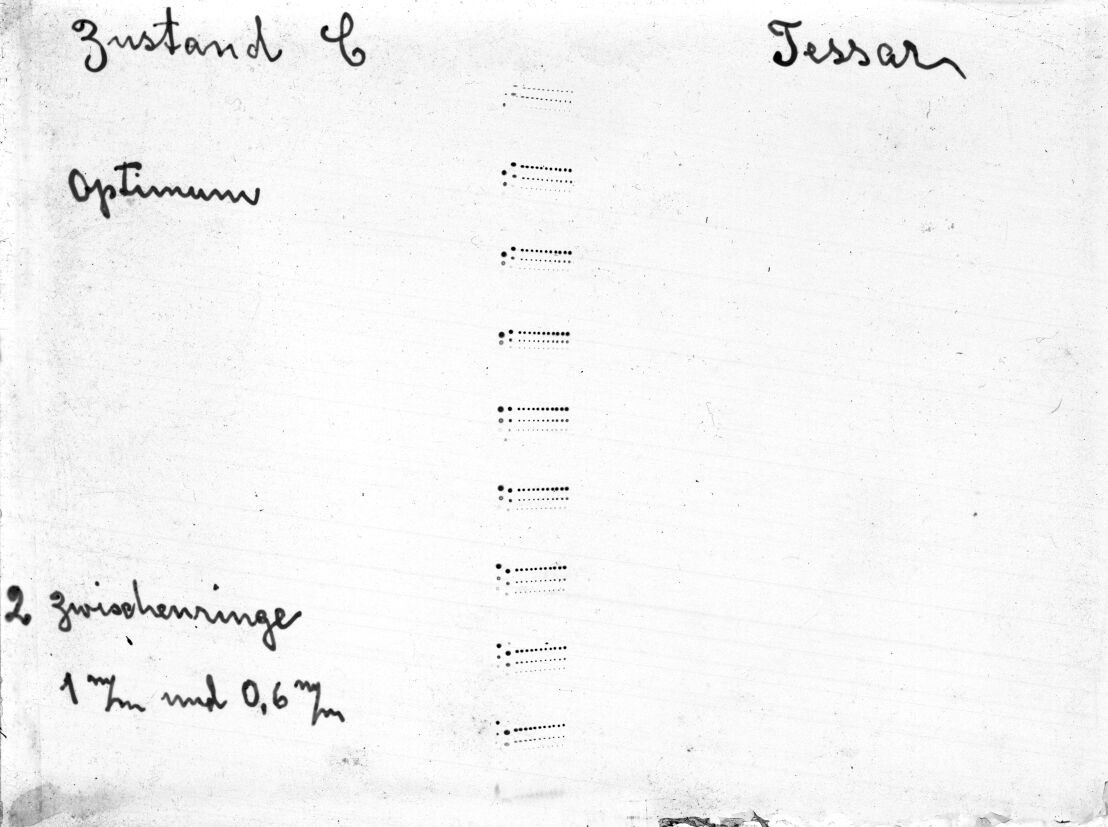 Zustand C
Tessar
Optimum
2 Zwischenringe
1 m/m und 0,6 m/m